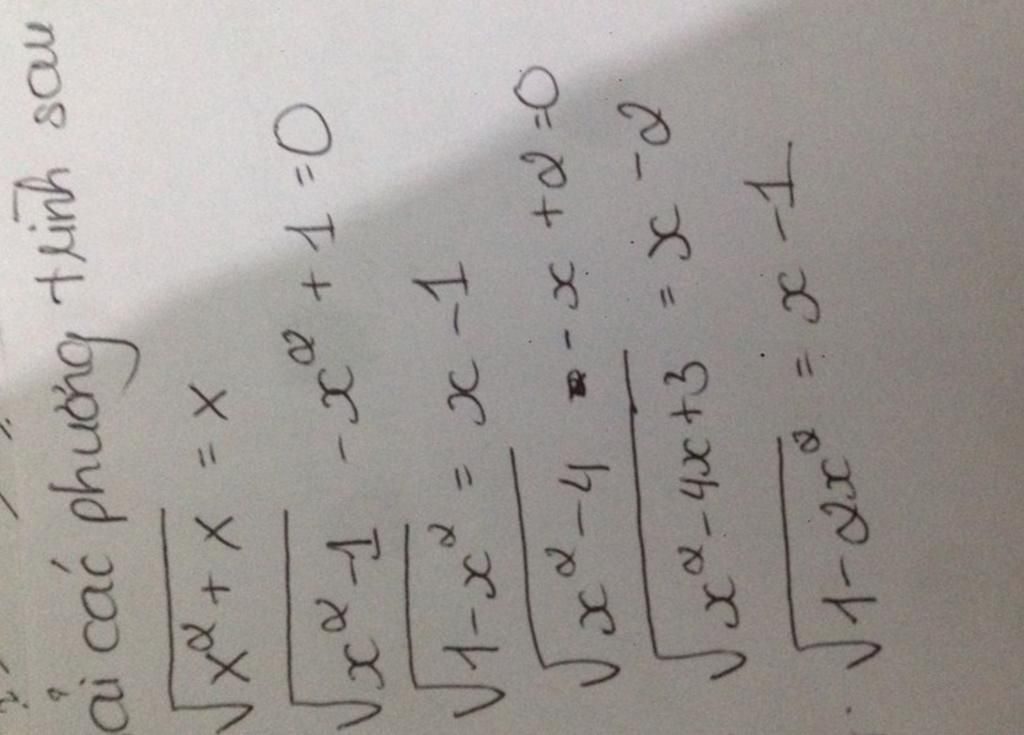 ải các phương trình sau
√(x² + x) = x
√(x² - 1) - x² + 1 = 0
√(1 - x²) = x - 1
√(x² - 4) - x + 2 = 0
√(x² - 4x + 3) = x - 2
√(1 - 2x²) = x - 1